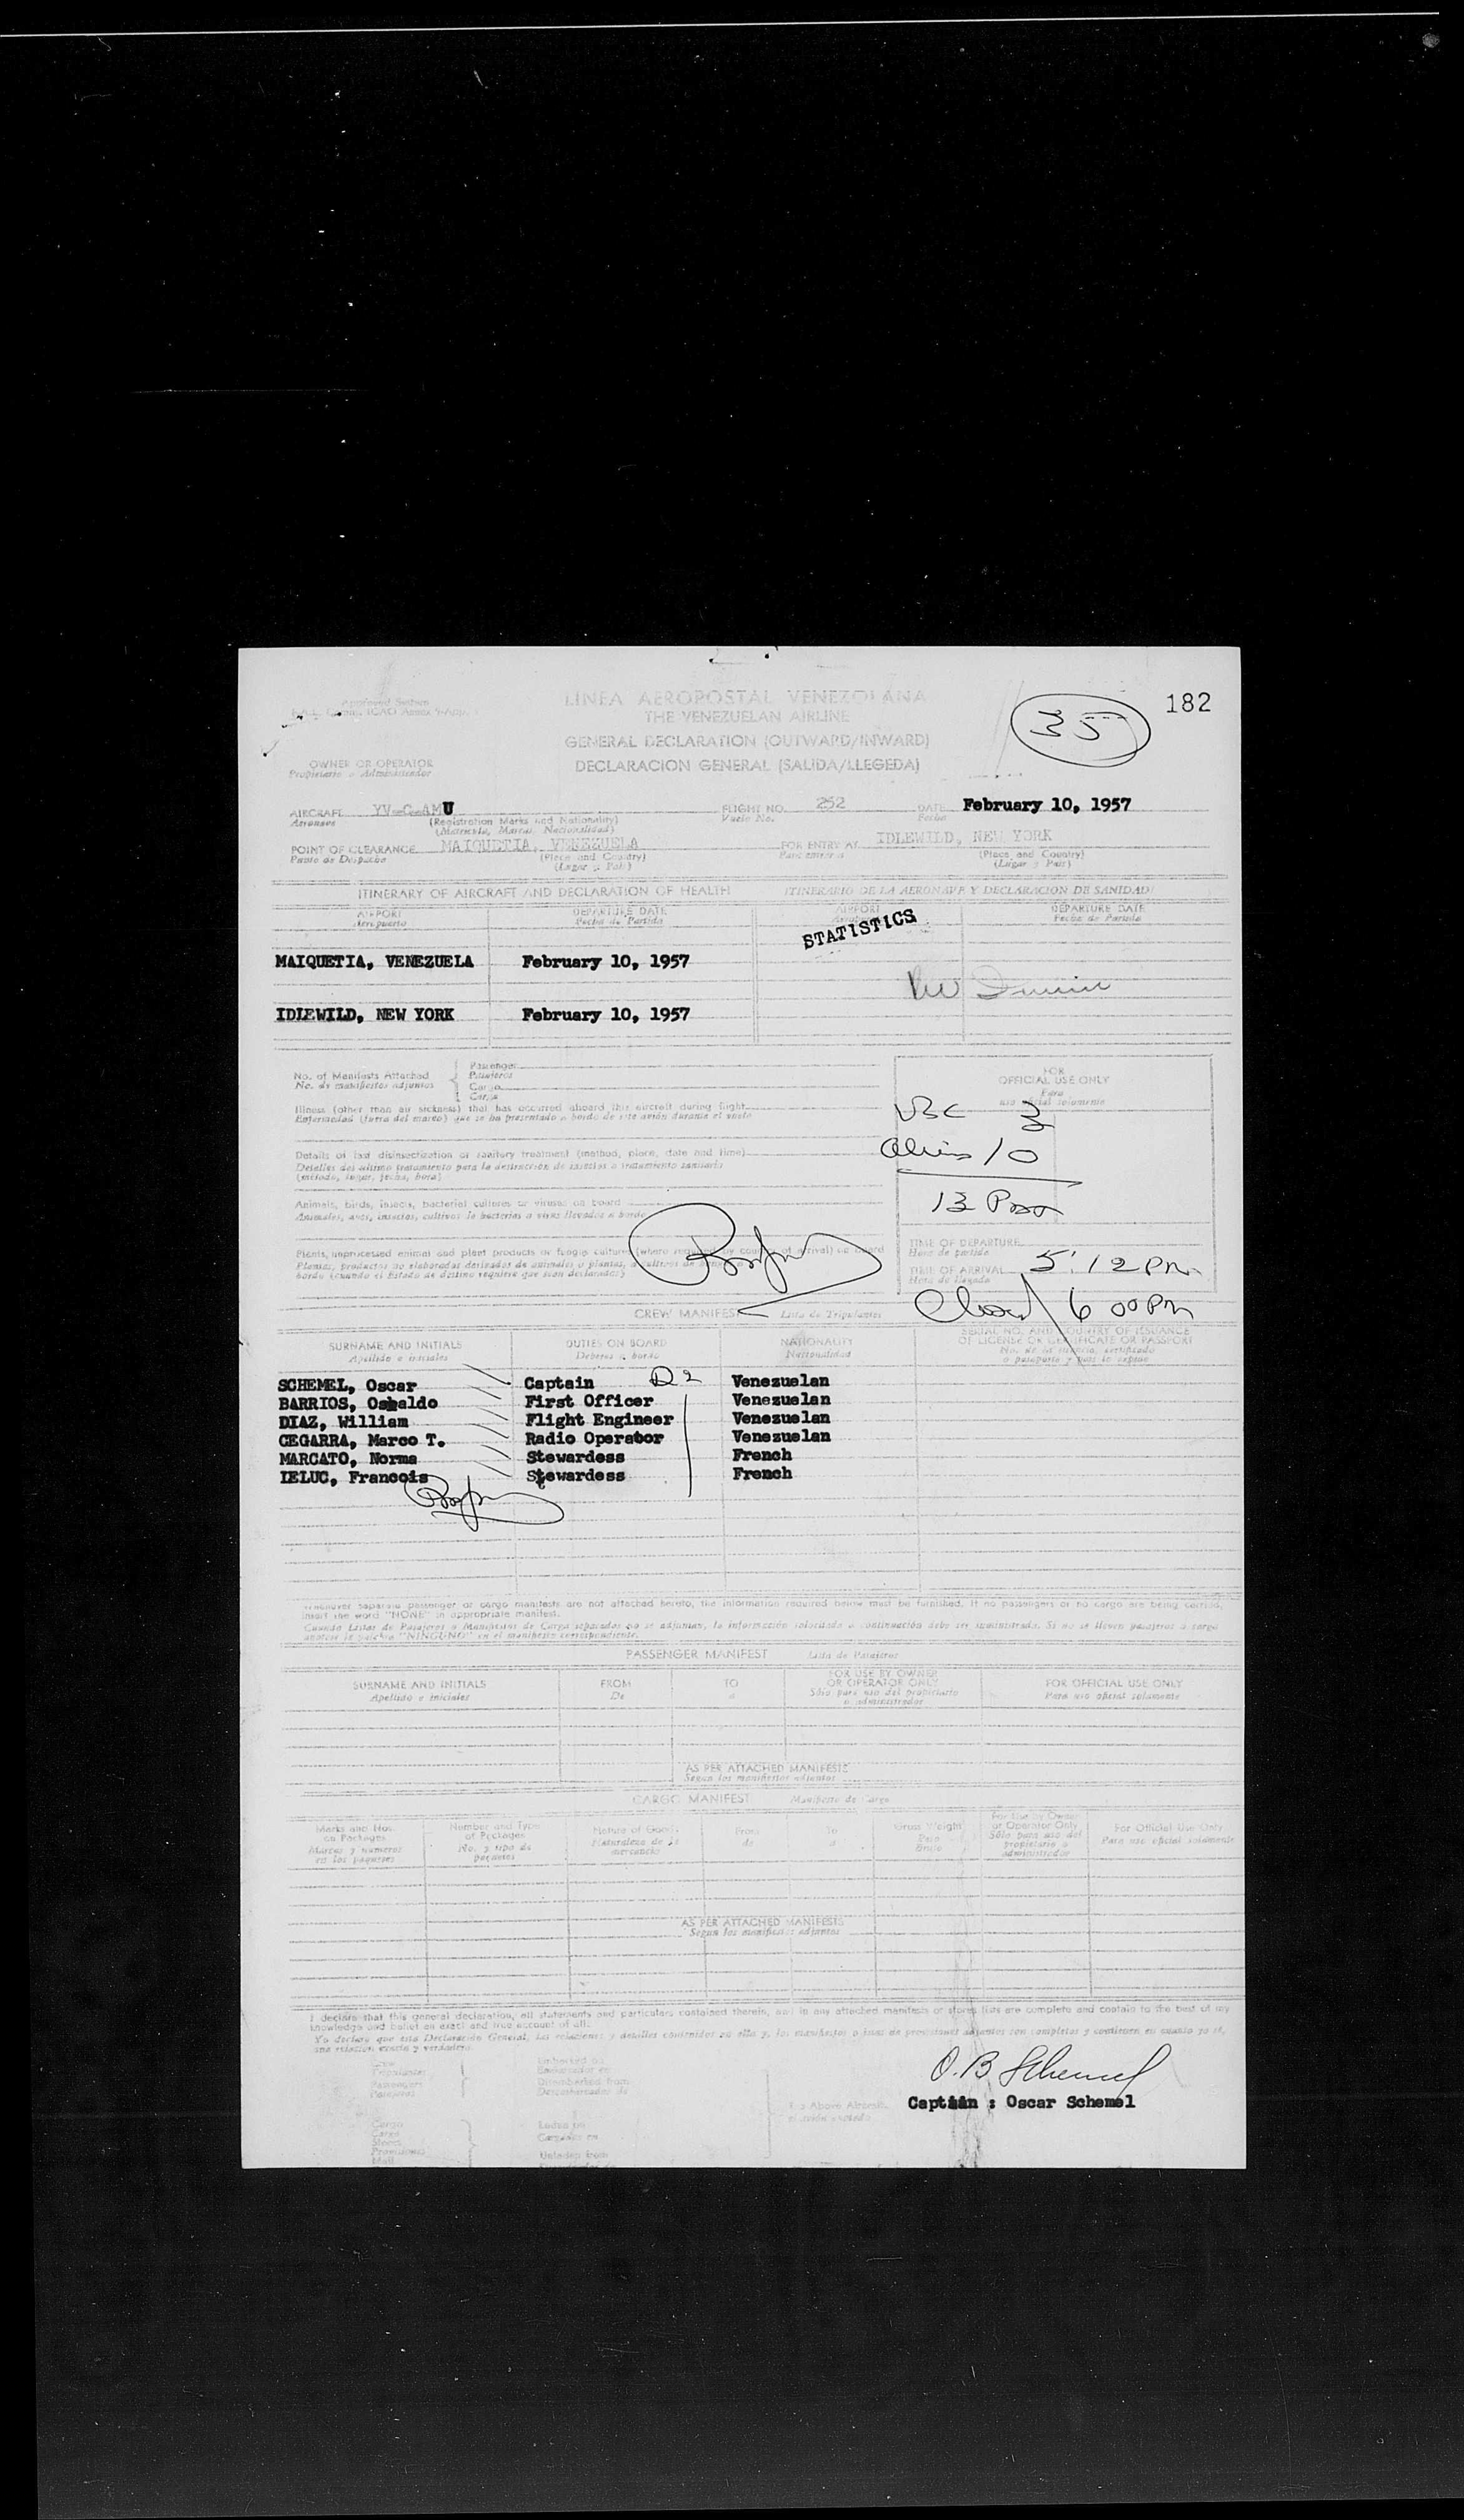 LINEA AEROPOSTAL VENEZOLANA
THE VENEZUELAN AIRLINE
GENERAL DECLARATION (OUTWARD/INWARD)
DECLARACION GENERAL (SALIDA/LLEGEDA)
35
182
OWNER OR OPERATOR
Propietario o Administrador
AIRCRAFT YV-C-AMU FLIGHT NO. 252 DATE February 10, 1957
Aeronave (Registration Marks and Nationality) Vuelo No. Fecha
(Matricula, Marcas, Nacionalidad)
POINT OF CLEARANCE MAIQUETIA, VENEZUELA FOR ENTRY AT IDLEWILD, NEW YORK
Punto de Despacho (Place and Country) Para entrar a (Place and Country)
(Lugar y Pais) (Lugar y Pais)
ITINERARY OF AIRCRAFT AND DECLARATION OF HEALTH ITINERARIO DE LA AERONAVE Y DECLARACION DE SANIDAD
AIRPORT DEPARTURE DATE AIRPORT DEPARTURE DATE
Aeropuerto Fecha de Partida Fecha de Partida
STATISTICS
MAIQUETIA, VENEZUELA February 10, 1957
IDLEWILD, NEW YORK February 10, 1957
No. of Manifests Attached Passenger
No. de manifiestos adjuntos Pasajeros
Cargo
Carga
FOR
OFFICIAL USE ONLY
Para
uso oficial solamente
Illness (other than air sickness) that has occurred aboard this aircraft during flight
Enfermedad (fuera del mareo) que se ha presentado a bordo de este avión durante el vuelo
USC 3
Aliens 10
13 Pax
Details of last disinsectization or sanitary treatment (method, place, date and time)
Detalles del ultimo tratamiento para la destrucción de insectos o tratamiento sanitario
(método, lugar, fecha, hora)
Animals, birds, insects, bacterial cultures or viruses on board
Animales, aves, insectos, cultivos de bacterias o virus llevados a bordo
Plants, unprocessed animal and plant products or fungus cultures (where required by country of arrival) on board
Plantas, productos no elaborados derivados de animales o plantas, o cultivos de
bordo (cuando el Estado de destino requiere que sean declarados)
TIME OF DEPARTURE
Hora de partida
TIME OF ARRIVAL 5:12 PM
Hora de llegada
Closed 6 00 PM
CREW MANIFEST Lista de Tripulantes
SURNAME AND INITIALS DUTIES ON BOARD NATIONALITY SERIAL NO. AND COUNTRY OF ISSUANCE
OF LICENSE OR CERTIFICATE OR PASSPORT
Apellido e iniciales Deberes a bordo Nacionalidad No. de la licencia, certificado
o pasaporte y pais lo expide
SCHEMEL, Oscar Captain D2 Venezuelan
BARRIOS, Oswaldo First Officer Venezuelan
DIAZ, William Flight Engineer Venezuelan
CEGARRA, Marco T. Radio Operator Venezuelan
MARCATO, Norma Stewardess French
LELUC, Francois Stewardess French
Whenever separate passenger or cargo manifests are not attached hereto, the information required below must be furnished. If no passengers or no cargo are being carried,
insert the word "NONE" in appropriate manifest.
Cuando Listas de Pasajeros o Manifiestos de Carga separados no se adjuntan, la información solicitada a continuación debe ser suministrada. Si no se lleven pasajeros o carga
anótese la palabra "NINGUNO" en el manifiesto correspondiente.
PASSENGER MANIFEST Lista de Pasajeros
SURNAME AND INITIALS FROM TO FOR USE BY OWNER OR OPERATOR ONLY FOR OFFICIAL USE ONLY
Apellido e iniciales De a Sólo para uso del propietario o administrador Para uso oficial solamente
AS PER ATTACHED MANIFESTS
Segun los manifiestos adjuntos
CARGO MANIFEST Manifiesto de Carga
Marks and Nos. on Packages Number and Type of Packages Nature of Goods From To Gross Weight For Use by Owner or Operator Only For Official Use Only
Marcas y numeros en los paquetes No. y tipo de paquetes Naturaleza de la mercancia de a Peso Bruto Sólo para uso del propietario o administrador Para uso oficial solamente
AS PER ATTACHED MANIFESTS
Segun los manifiestos adjuntos
I declare that this general declaration, all statements and particulars contained therein, and in any attached manifests or stores lists are complete and contain to the best of my
knowledge and belief an exact and true account of all.
Yo declaro que esta Declaración General, las relaciones y detalles contenidos en ella y, los manifiestos o listas de provisiones adjuntos son completos y contienen en cuanto yo sé,
una relacion exacta y verdadera.
Crew Embarked on
Tripulantes Embarcados en
Passengers Disembarked from
Pasajeros Desembarcados de
The Above Aircraft
O. B Schemel
Captain : Oscar Schemel
Cargo Laden on
Carga Cargados en
Stores
Provisiones
Mail Unladen from